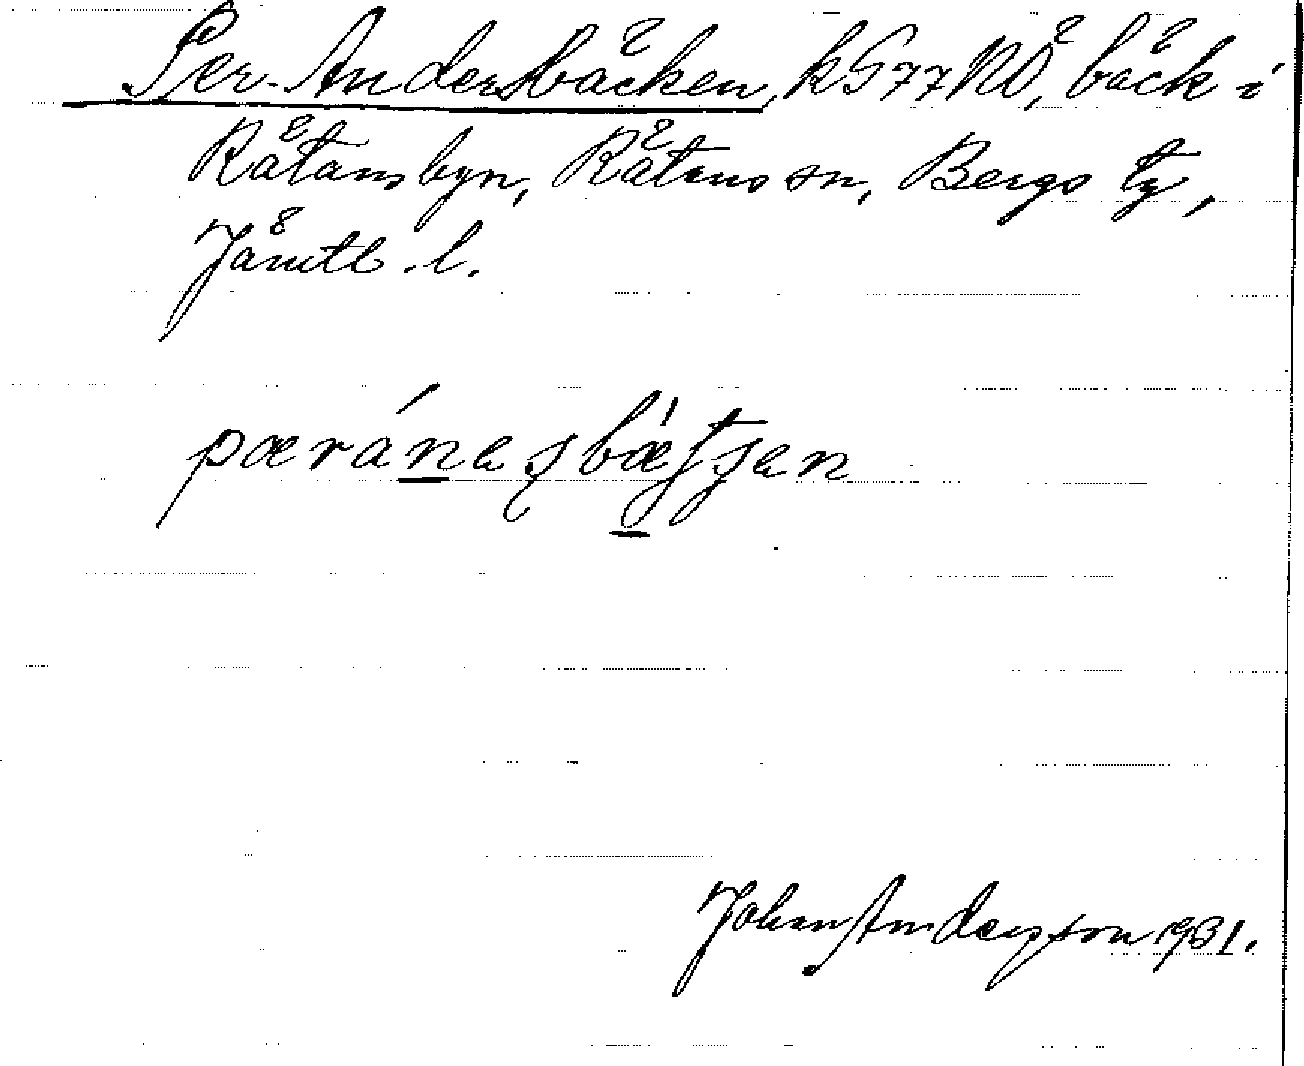 Per-Andersbäcken, kG77NÖ, bäck i
Rätansbyn, Rätans sn, Bergs tg,
Jämtl. l.
pæránesbætsen
Johan Anderzson 1931.